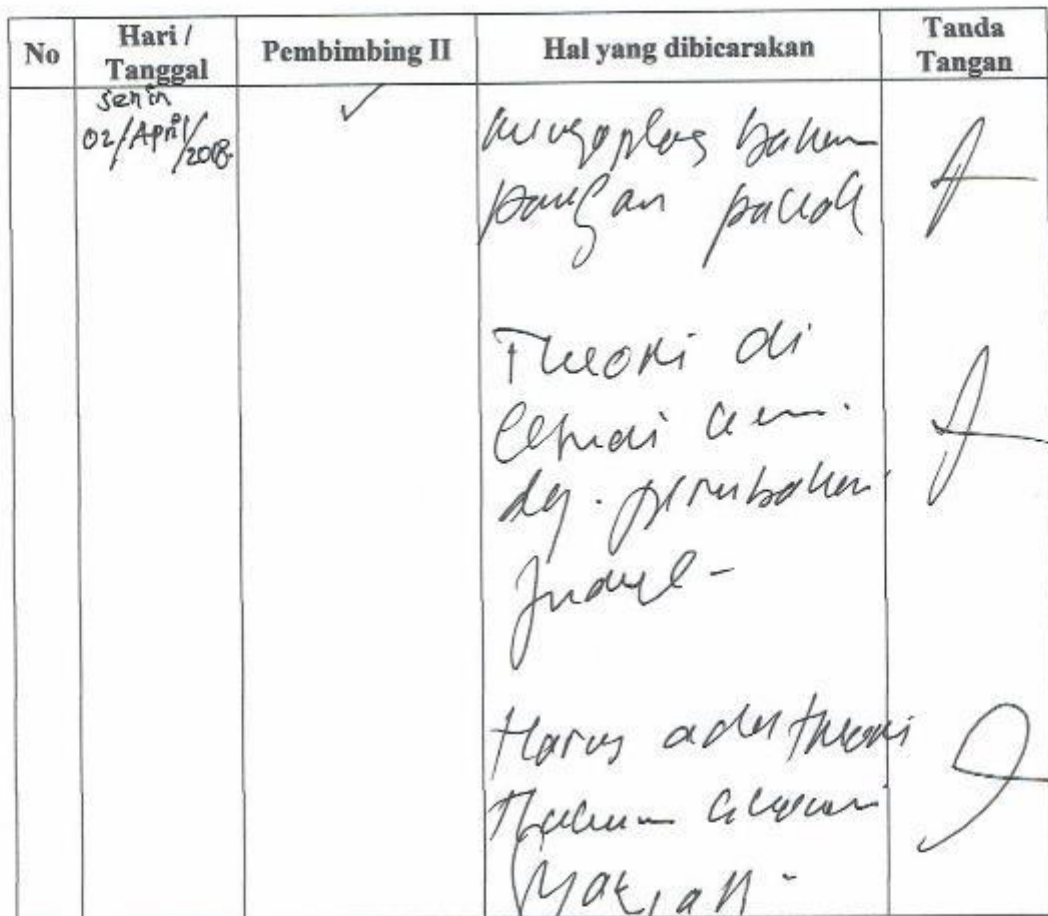 No
Hari /
Tanggal
Pembimbing II
Hal yang dibicarakan
Tanda
Tangan
Senin
02/April/2018.
✓
mengoplos bahan
pangan pokok
Theori di
dg. perubahan
Judul -
Harus ada theori